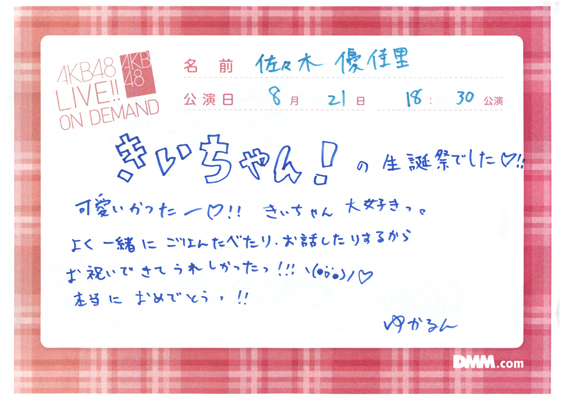 AKB48
LIVE!!
ON DEMAND
AKB
48
名前 佐々木 優佳里
公演日 8月 21日 18:30公演
きぃちゃん! の 生誕祭でした♡!!
可愛いかったー♡!! きぃちゃん 大好きっ。
よく 一緒に ごはんたべたり、お話したりするから
お祝いできてうれしかったっ!!! ヽ(•ö•)ノ♡
本当に おめでとうっ!!
ゆかるん
DMM.com